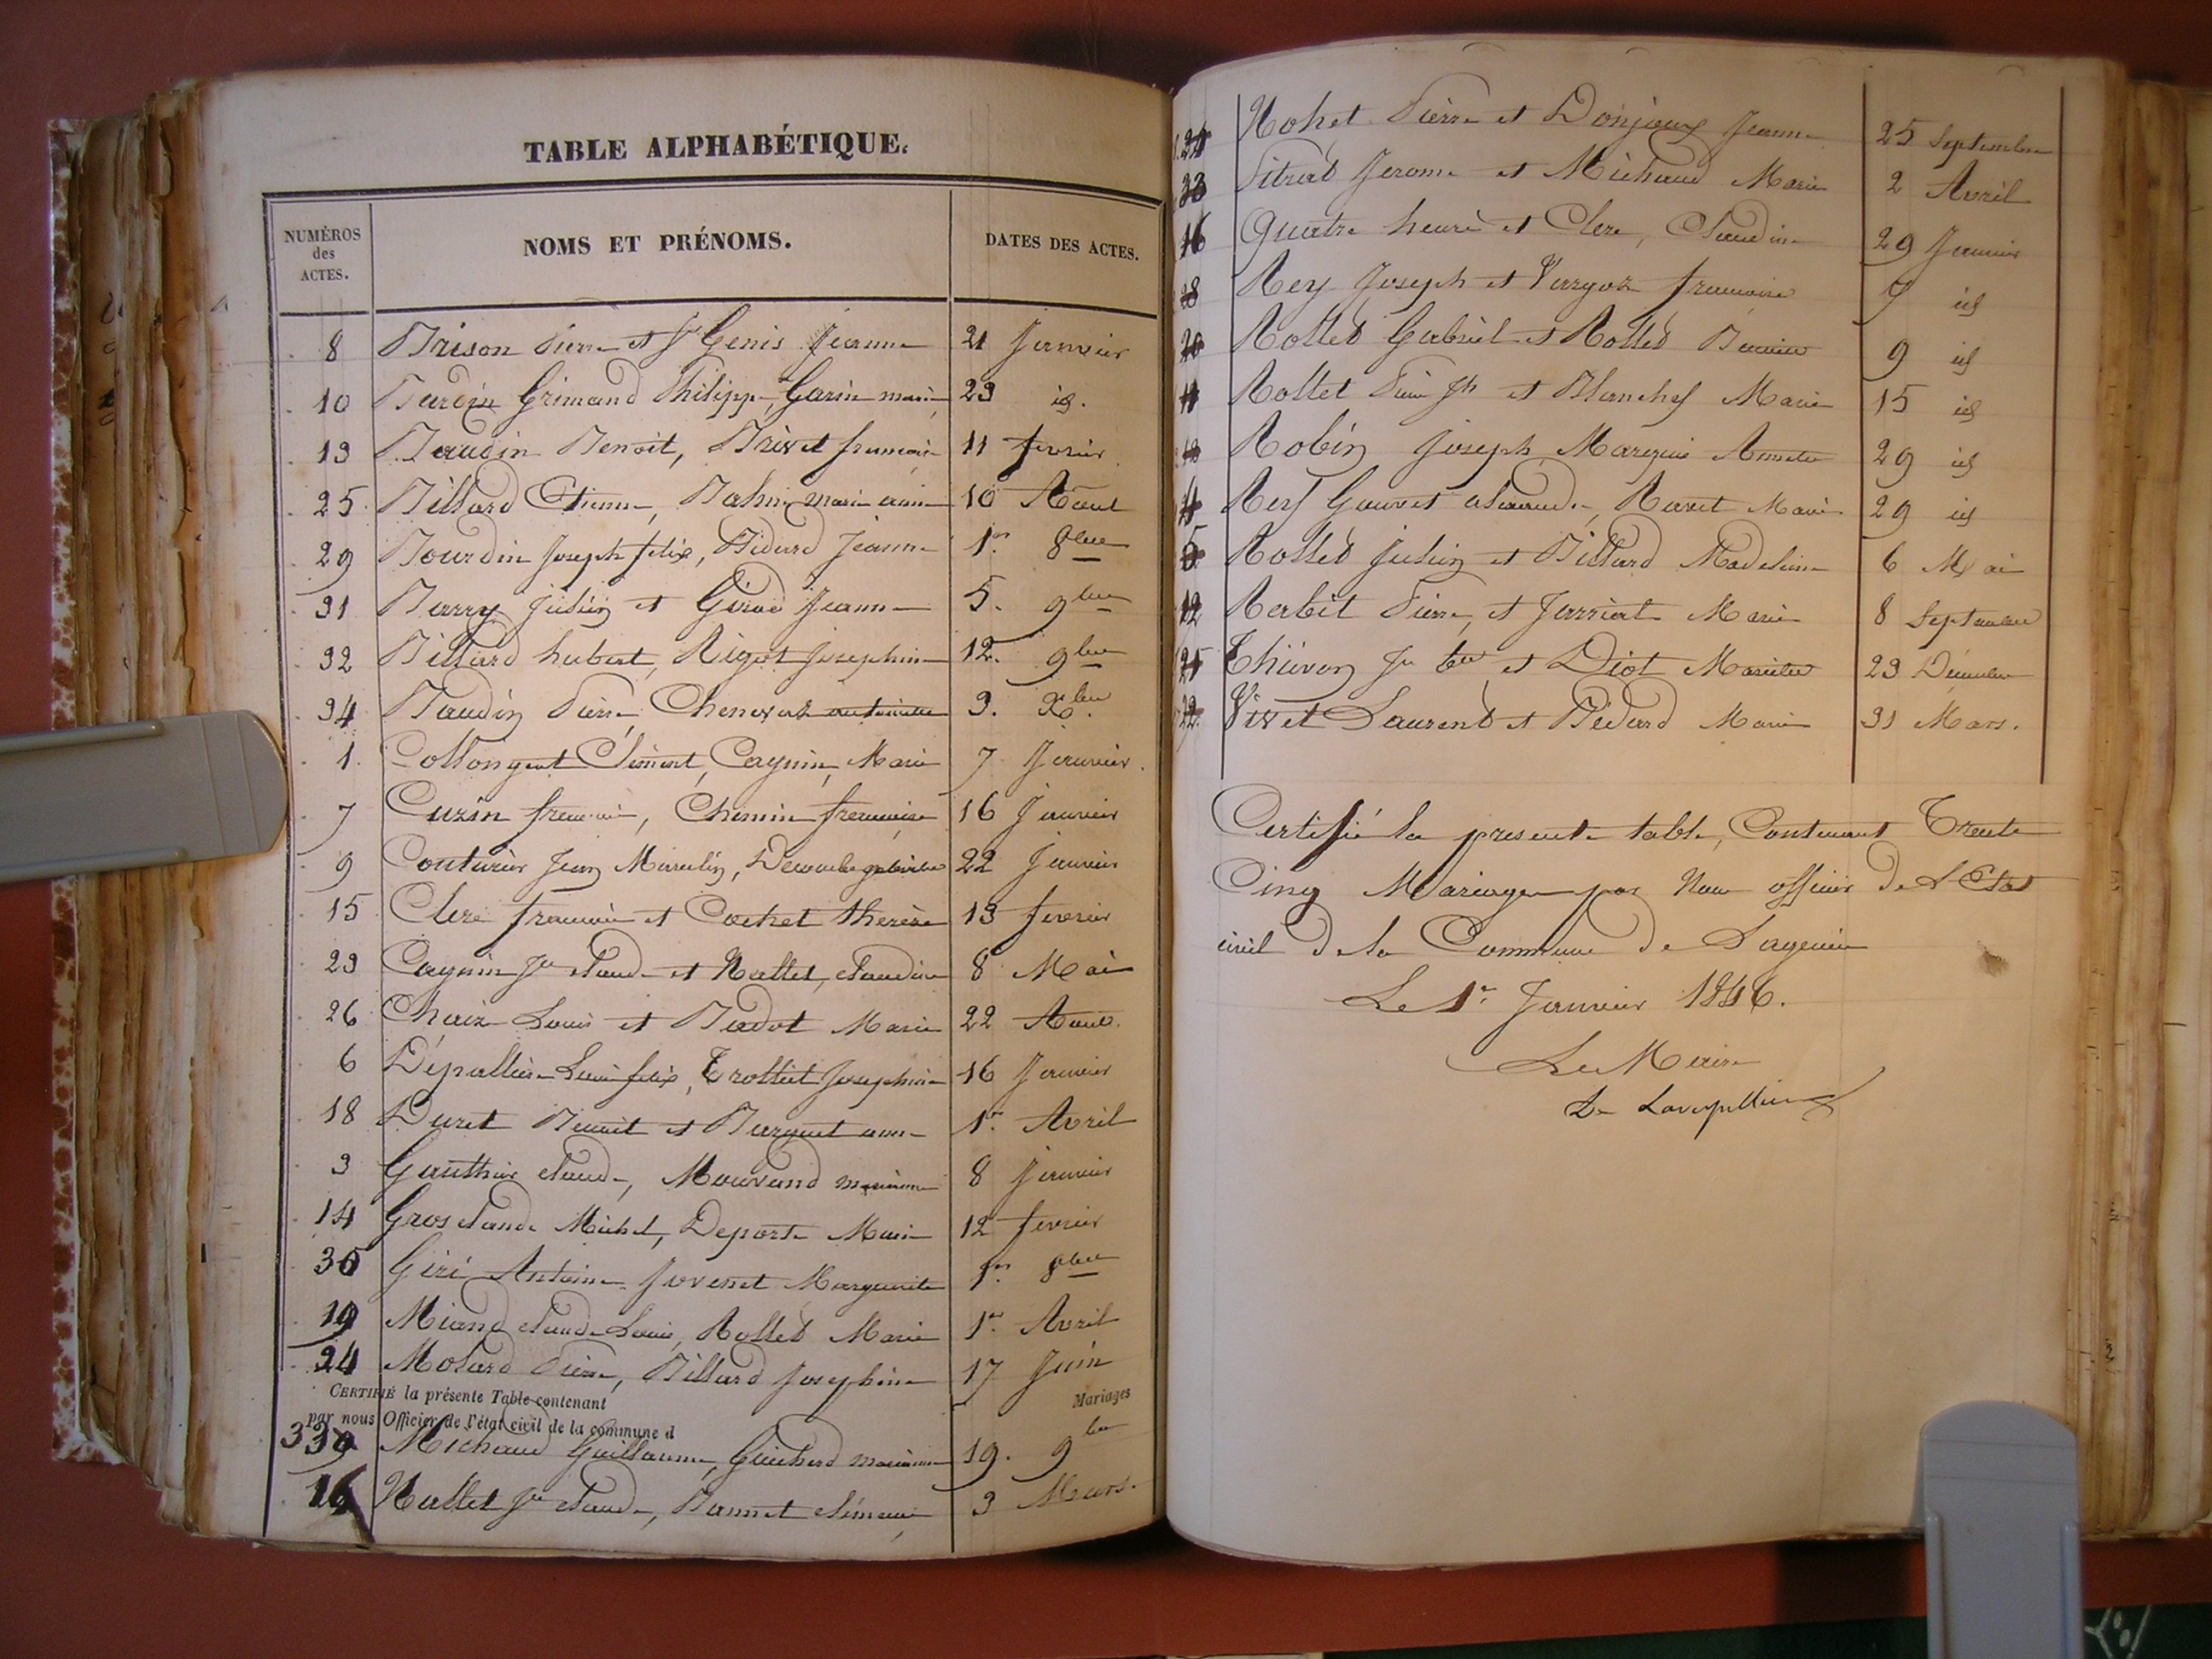 TABLE ALPHABÉTIQUE.
NUMÉROS des ACTES.
NOMS ET PRÉNOMS.
DATES DES ACTES.
8 Brison Pierre et St Genis Jeanne 21 Janvier
10 Bardin Grimand Philippe, Garin marie 23 id.
13 Baudin Benoit, Brivet françoise 11 fevrier
25 Billard Etienne, marie anne 10 Aout
29 Bourdin Joseph felix, Bidard Jeanne 1er 8bre
31 Barry Julien et Giroud Jeanne 5. 9bre
32 Billard hubert, Rigot Josephine 12. 9bre
34 Baudin Pierre Chenavaz antoinette 3. Xbre
1 Collongeat Clément, Cagnin, Marie 7 Janvier
7 Cuzin françois, Chemin françoise 16 Janvier
9 Couturier Jean Marcelin, 22 Janvier
15 Clerc françois et Cochet therèse 13 fevrier
23 Cagnin Jn claude et Nallet, claudine 8 Mai
26 Chaix Louis et Badot Marie 22 Aout
6 Dépallière Louis felix, Trolliet Josephine 16 Janvier
18 Duret Benoit et Barquet anne 1er Avril
3 Gauthier claude, Mouvand marianne 8 Janvier
14 Gros claude Michel, Deporte Marie 12 fevrier
30 Giri Antoine Jovenet Marguerite 1er 8bre
19 Miand claude Louis, Rollet Marie 1er Avril
24 Molard Pierre, Billard Josephine 17 Juin
CERTIFIÉ la présente Table contenant Mariages
par nous Officier de l'état civil de la commune d
33 Michaud Guillaume, Guichard marianne 19. 9bre
16 Nallet Jn claude, Bannet 3 Mars.
Nohet Pierre et Donjoux Jeanne 25 Septembre
Pitrat Jerome et Michaud Marie 2 Avril
Quatre heure et Clerc, Claudine 29 Janvier
Rey Joseph et françoise 9 id
Rollet Gabriel et Rollet 9 id
Rollet Jh et Blanchet Marie 15 id
Robin Joseph Marquis Annette 29 id
Rey Gauvet, Ravet Marie 29 id
Rollet Julien et Billard Madeleine 6 Mai
Rabit Pierre, et Jarriat Marie 8 Septembre
Thiévon Jn bte et Diot Mariette 23 Décembre
Vivet Laurent et Bidard Marie 31 Mars.
Certifié la presente table, Contenant Trente
Cinq Mariages par Nous officier de L'Etat
civil de la Commune de Lagnieu
Le 1er Janvier 1846.
Le Maire